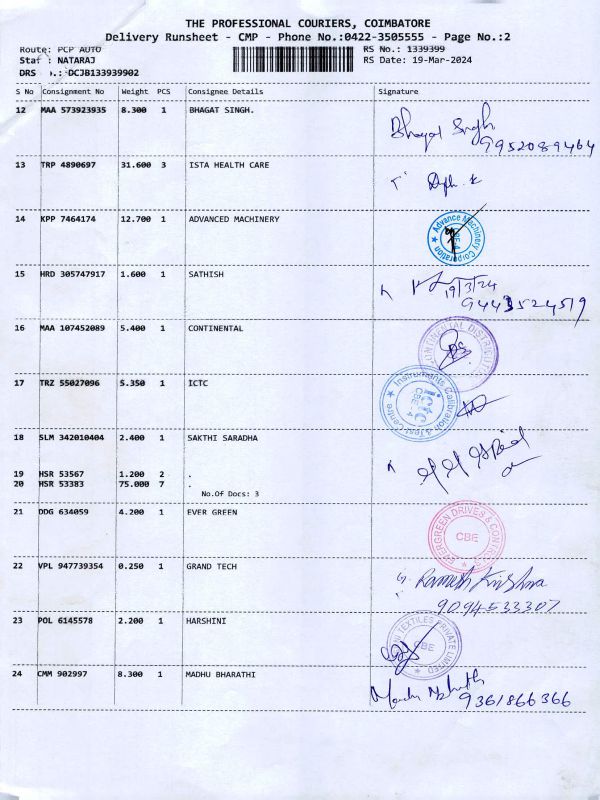 THE PROFESSIONAL COURIERS, COIMBATORE
Delivery Runsheet - CMP - Phone No.:0422-3505555 - Page No.:2
Route: PCP AUTO
RS No.: 1339399
Staf : NATARAJ
RS Date: 19-Mar-2024
DRS .: DCJB133939902
S No Consignment No Weight PCS Consignee Details Signature
12 MAA 573923935 8.300 1 BHAGAT SINGH.
Bhagat Singh
9952089464
13 TRP 4890697 31.600 3 ISTA HEALTH CARE
14 KPP 7464174 12.700 1 ADVANCED MACHINERY
Advance Machinery Corporation
15 HRD 305747917 1.600 1 SATHISH
19/3/24
9443524519
16 MAA 107452089 5.400 1 CONTINENTAL
CONTINENTAL DISTRIBUTORS
17 TRZ 55027096 5.350 1 ICTC
Instruments Calibration & Test Centre
18 SLM 342010404 2.400 1 SAKTHI SARADHA
19 HSR 53567 1.200 2 .
20 HSR 53383 75.000 7 .
No.Of Docs: 3
21 DDG 634059 4.200 1 EVER GREEN
EVERGREEN DRIVES & CONTROLS
CBE
22 VPL 947739354 0.250 1 GRAND TECH
Ramesh Krishna
9094533307
23 POL 6145578 2.200 1 HARSHINI
TEXTILES PRIVATE LIMITED
CBE
24 CMM 902997 8.300 1 MADHU BHARATHI
9361866366